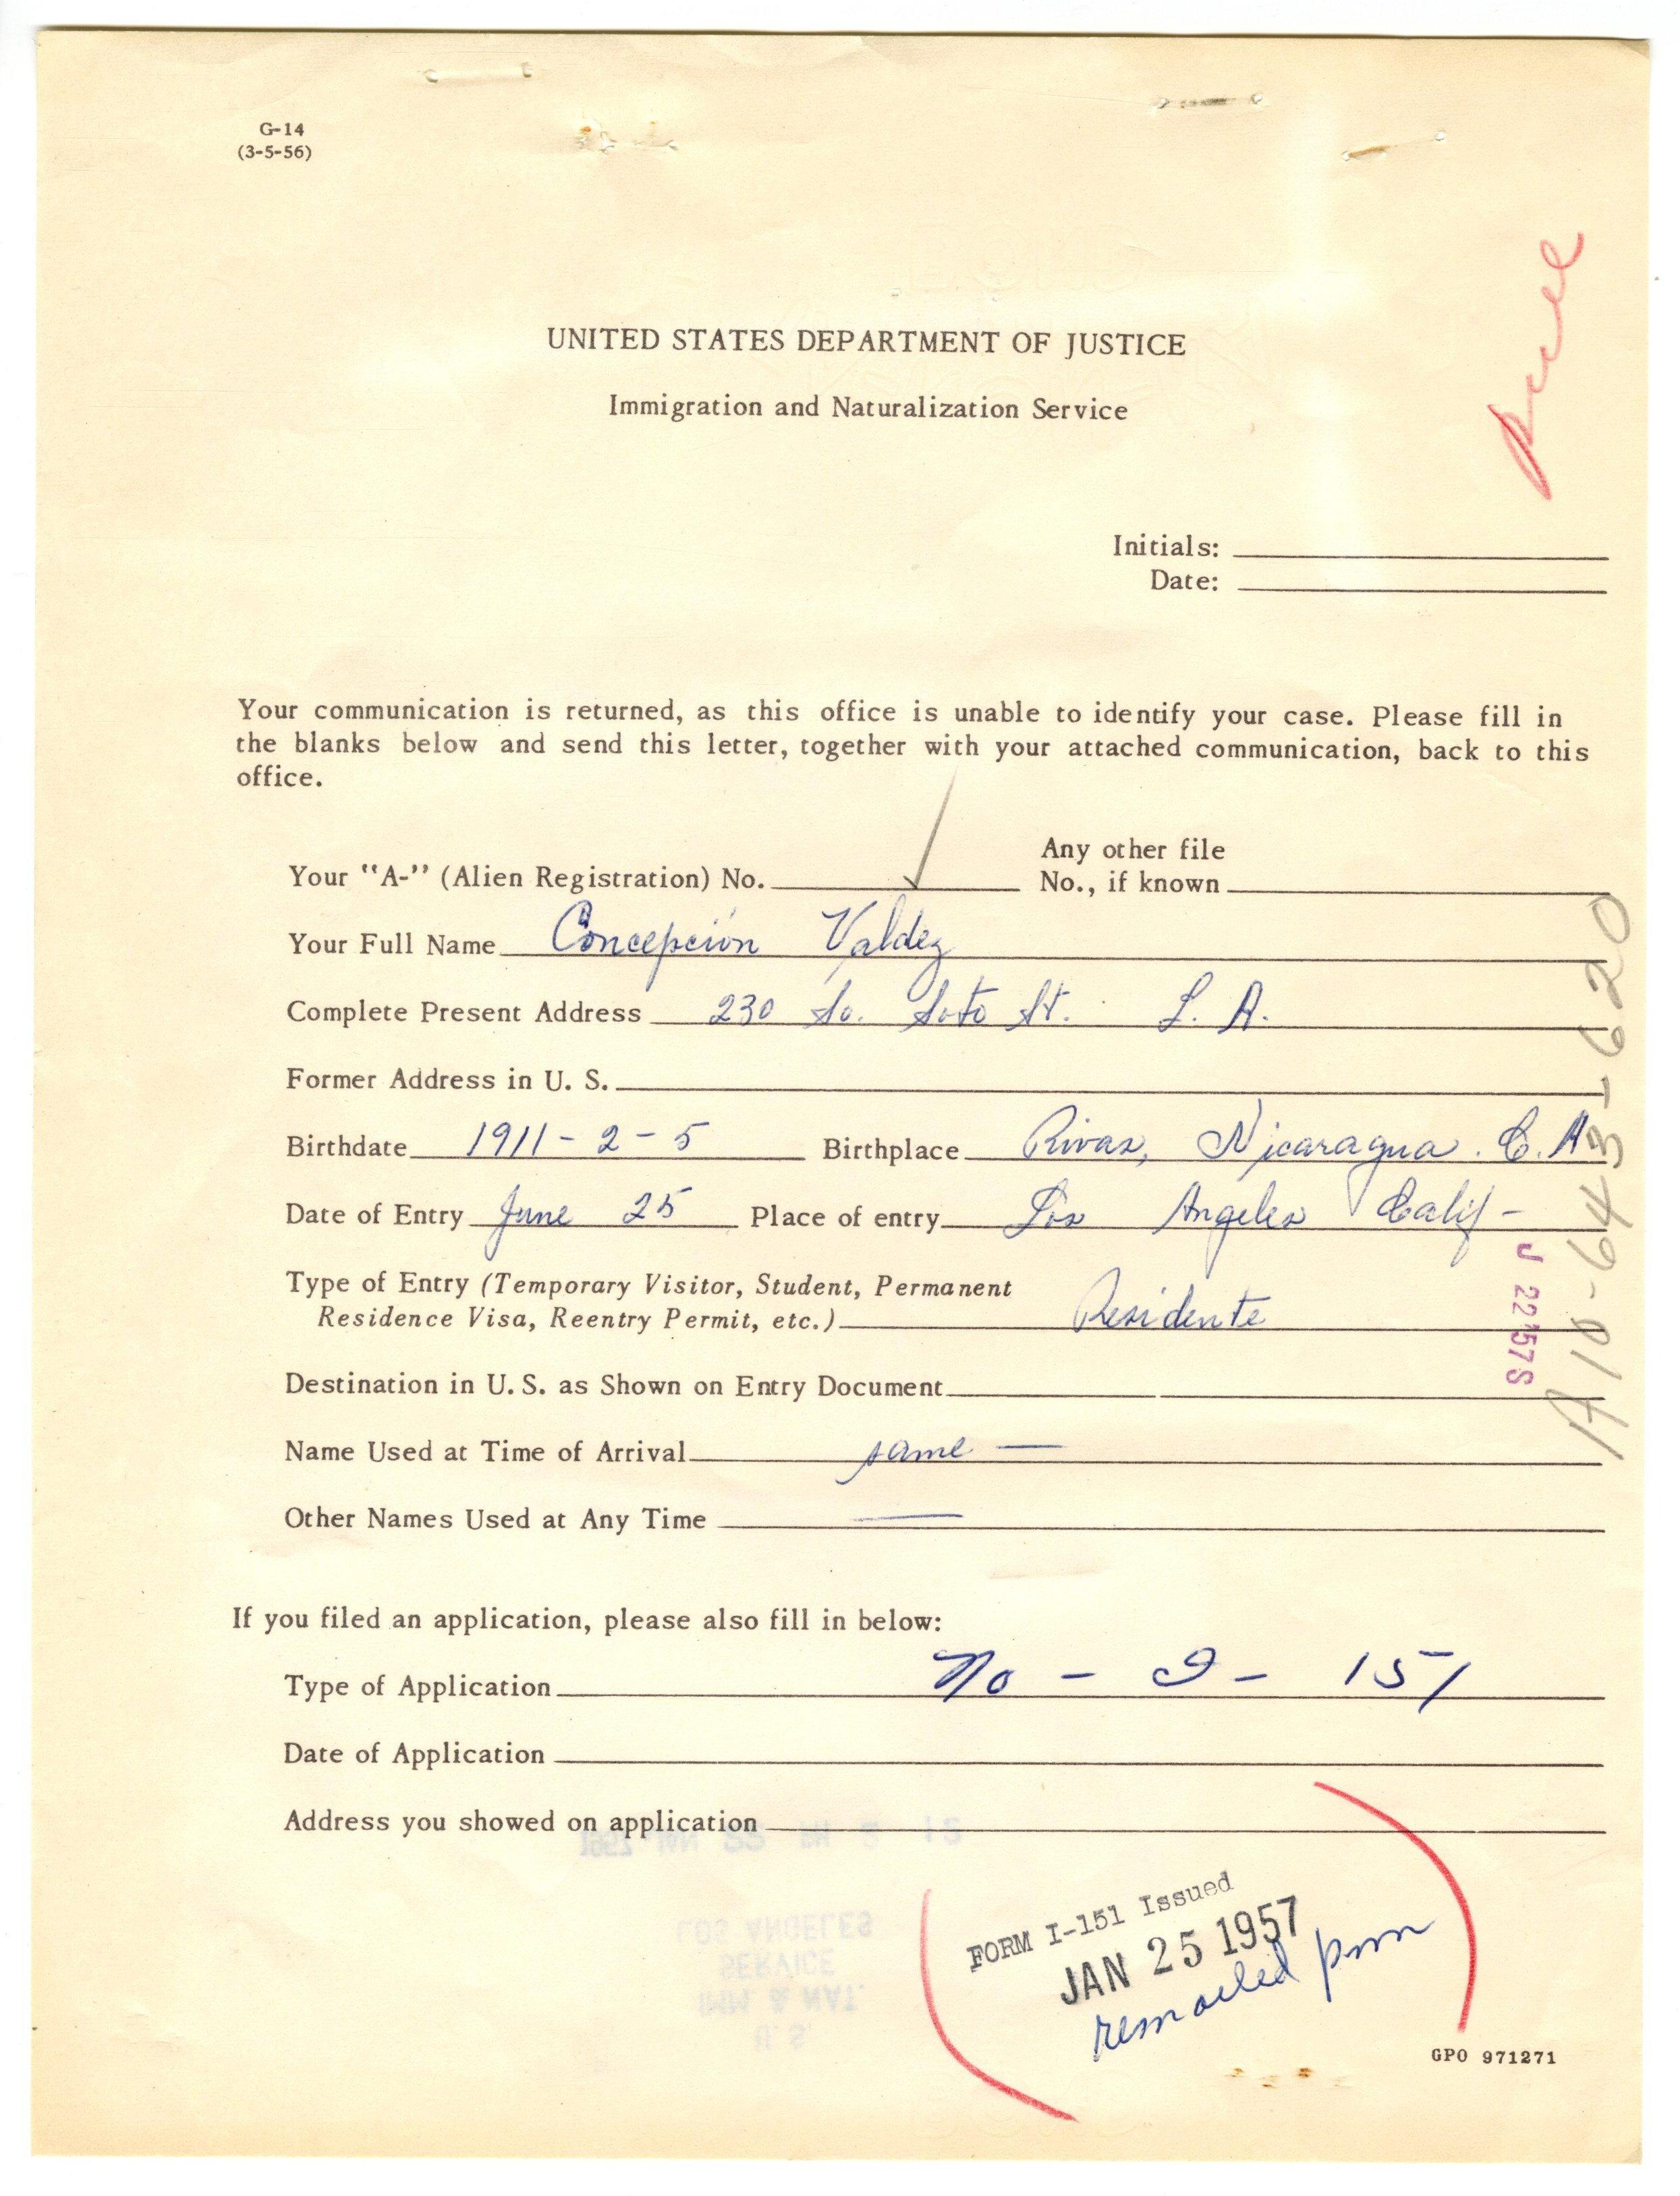 G-14
(3-5-56)
UNITED STATES DEPARTMENT OF JUSTICE
Immigration and Naturalization Service
Initials:
Date:
Your communication is returned, as this office is unable to identify your case. Please fill in
the blanks below and send this letter, together with your attached communication, back to this
office.
Any other file
Your "A-" (Alien Registration) No. No., if known
Your Full Name Concepción Valdez
Complete Present Address 230 So. Soto St. L. A.
Former Address in U. S.
Birthdate 1911-2-5 Birthplace Rivas, Nicaragua. C. A
Date of Entry June 25 Place of entry Los Angeles Calif-
Type of Entry (Temporary Visitor, Student, Permanent
Residence Visa, Reentry Permit, etc.) Residente
Destination in U. S. as Shown on Entry Document
Name Used at Time of Arrival same —
Other Names Used at Any Time —
A10-643-620
J 22'57S
If you filed an application, please also fill in below:
Type of Application No - I - 151
Date of Application
Address you showed on application
1957 JAN 22 PM 2 12
LOS ANGELES
SERVICE
IMM. & NAT.
U. S.
FORM I-151 Issued
JAN 25 1957
remailed
GPO 971271